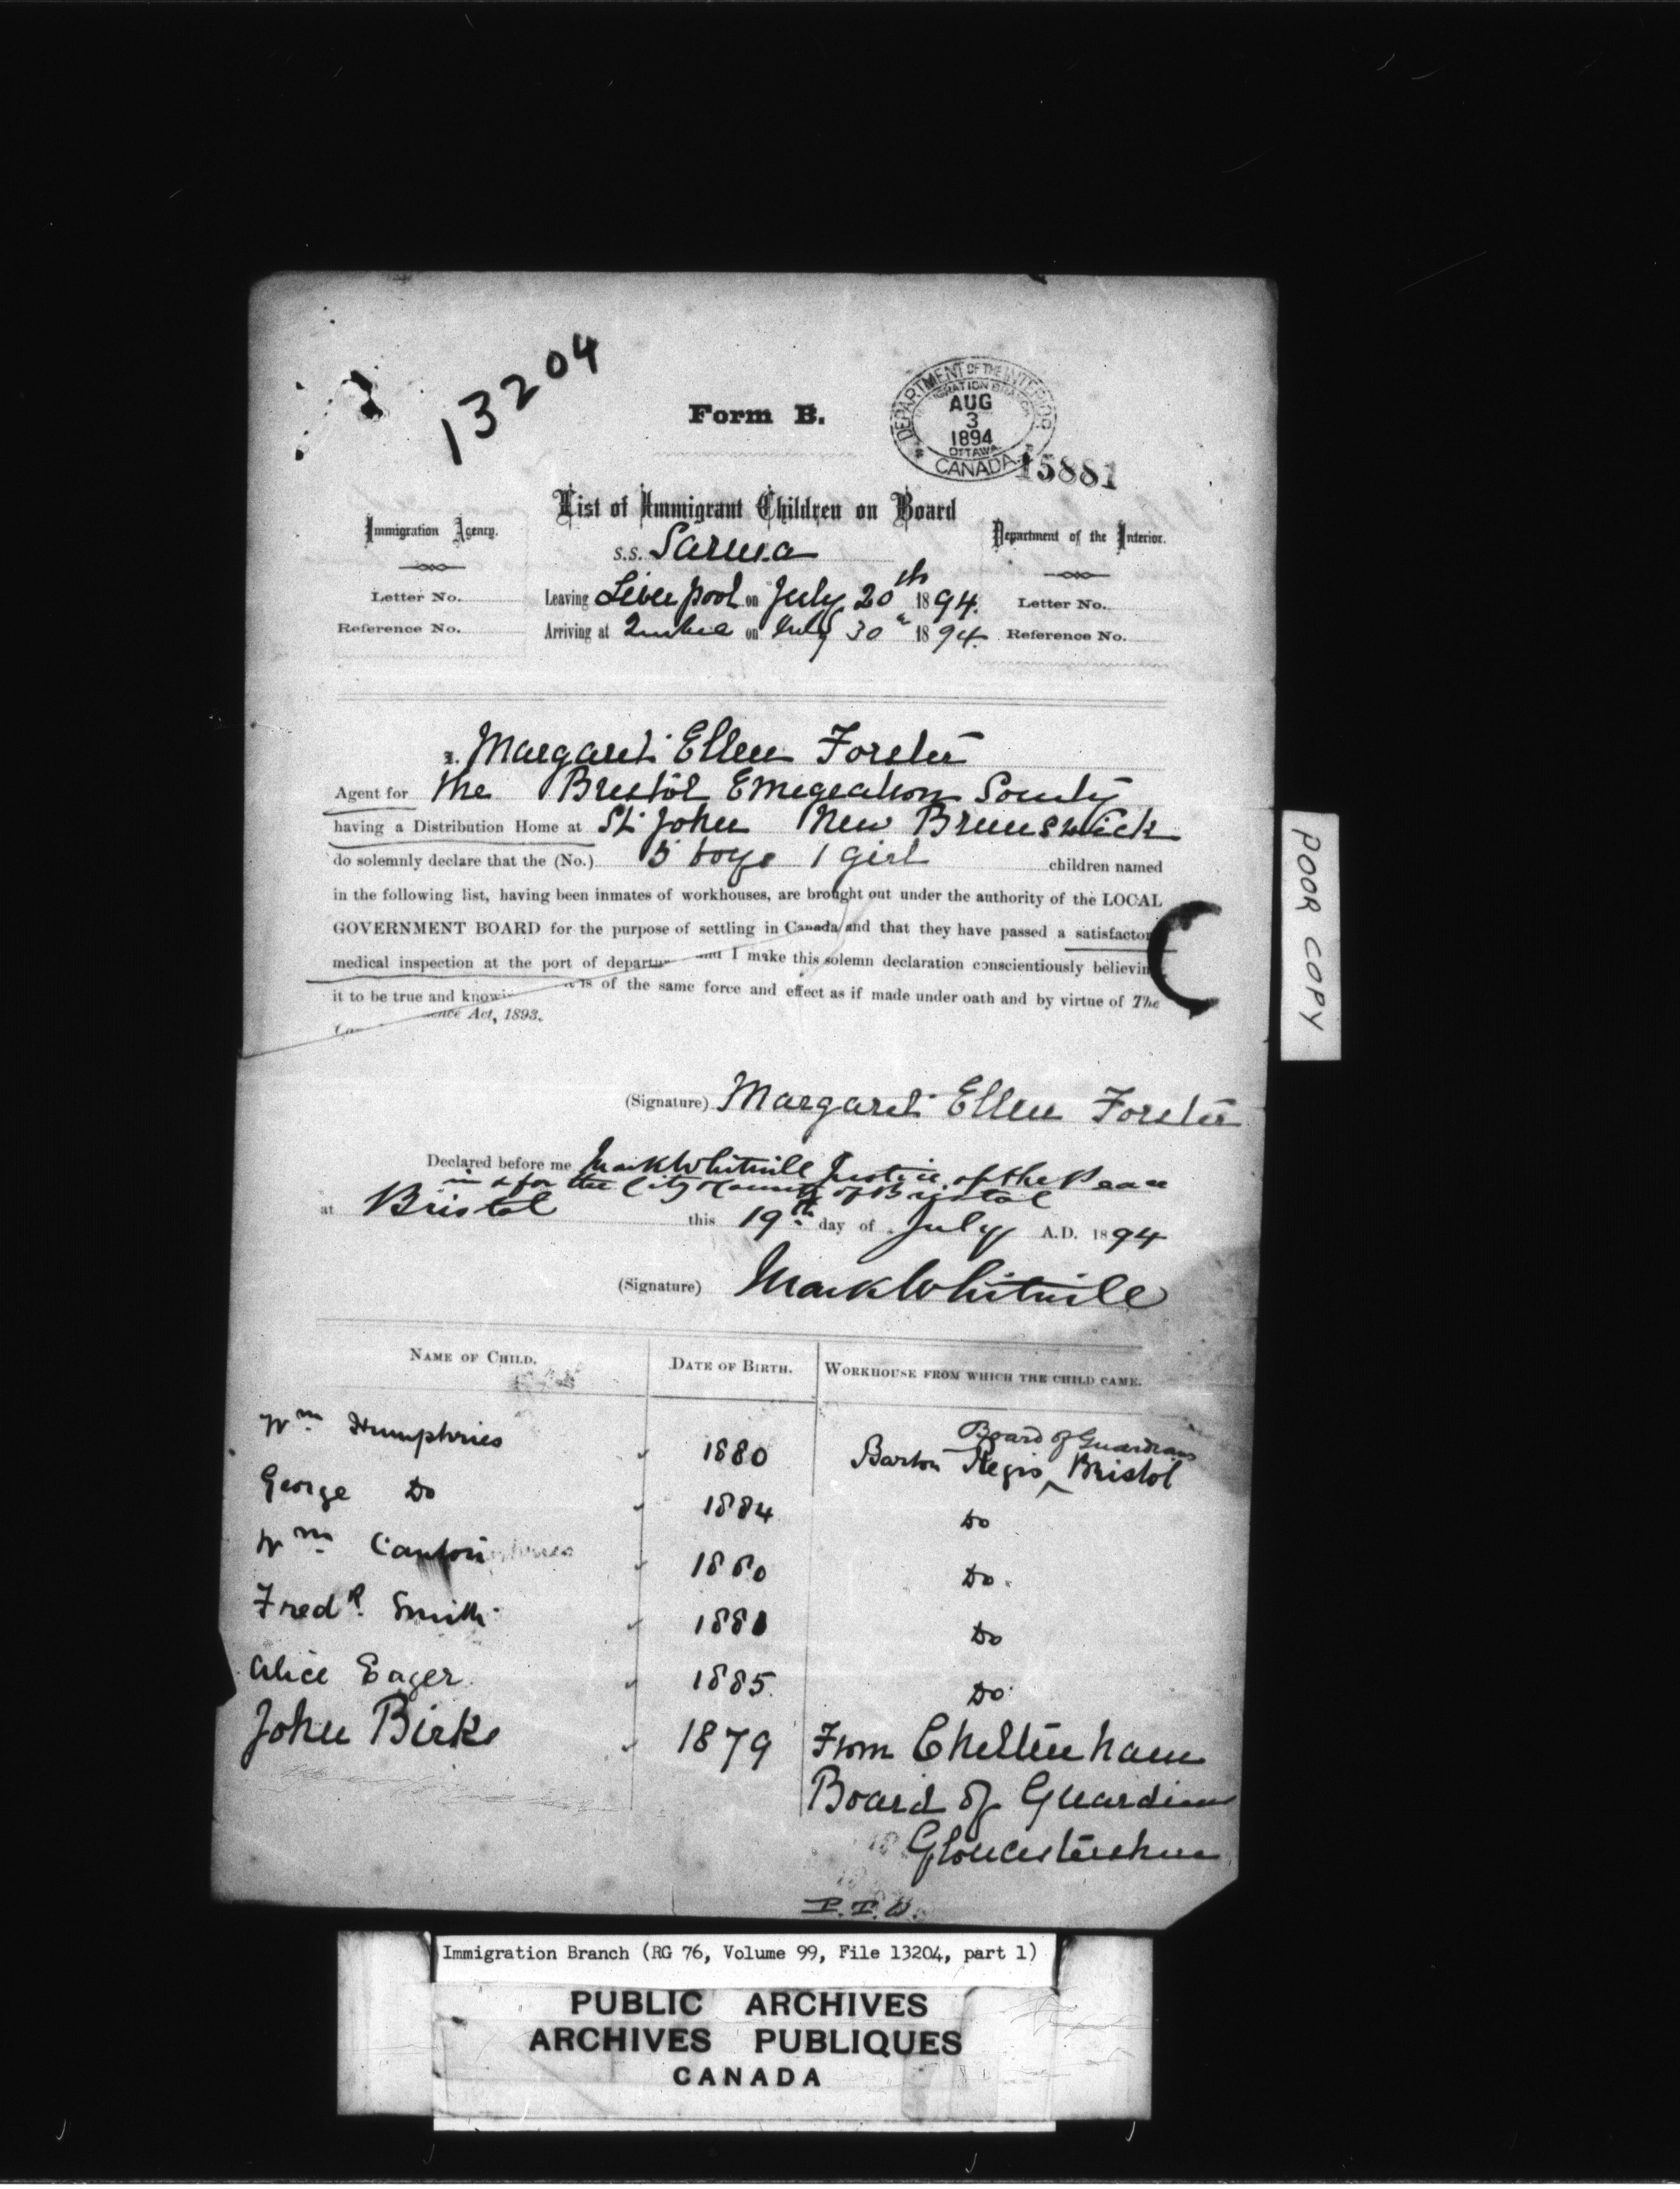 13204
Form B.
DEPARTMENT OF THE INTERIOR
AUG
3
1894
OTTAWA
CANADA
15881
List of Immigrant Children on Board
Immigration Agency.
Department of the Interior.
S.S. Sarnia
Letter No.
Leaving Liverpool on July 20th 1894.
Letter No.
Reference No.
Arriving at Quebec on July 30 1894.
Reference No.
I. Margaret Ellen Forster
Agent for the Bristol Emigration Society
having a Distribution Home at St. John New Brunswick
do solemnly declare that the (No.) 5 boys 1 girl children named
in the following list, having been inmates of workhouses, are brought out under the authority of the LOCAL
GOVERNMENT BOARD for the purpose of settling in Canada and that they have passed a satisfactor
medical inspection at the port of departu and I make this solemn declaration conscientiously believin
it to be true and knowi is of the same force and effect as if made under oath and by virtue of The
Act, 1893.
(Signature) Margaret Ellen Forster
Declared before me Mark Whitwill Justice of the Peace
in & for the City & County of Bristol
at Bristol this 19th day of July A.D. 1894
(Signature) Mark Whitwill
NAME OF CHILD. DATE OF BIRTH. WORKHOUSE FROM WHICH THE CHILD CAME.
Board of Guardians
Wm Humphries 1880 Barton Regis ^ Bristol
George Do 1884 Do
Wm 1880 Do.
Fredk. Smith 1881 Do
Alice Eager 1885. Do
John Birks 1879 From Cheltenham
Board of Guardians
Gloucestershire
P.T.O.
POOR COPY
Immigration Branch (RG 76, Volume 99, File 13204, part 1)
PUBLIC ARCHIVES
ARCHIVES PUBLIQUES
CANADA